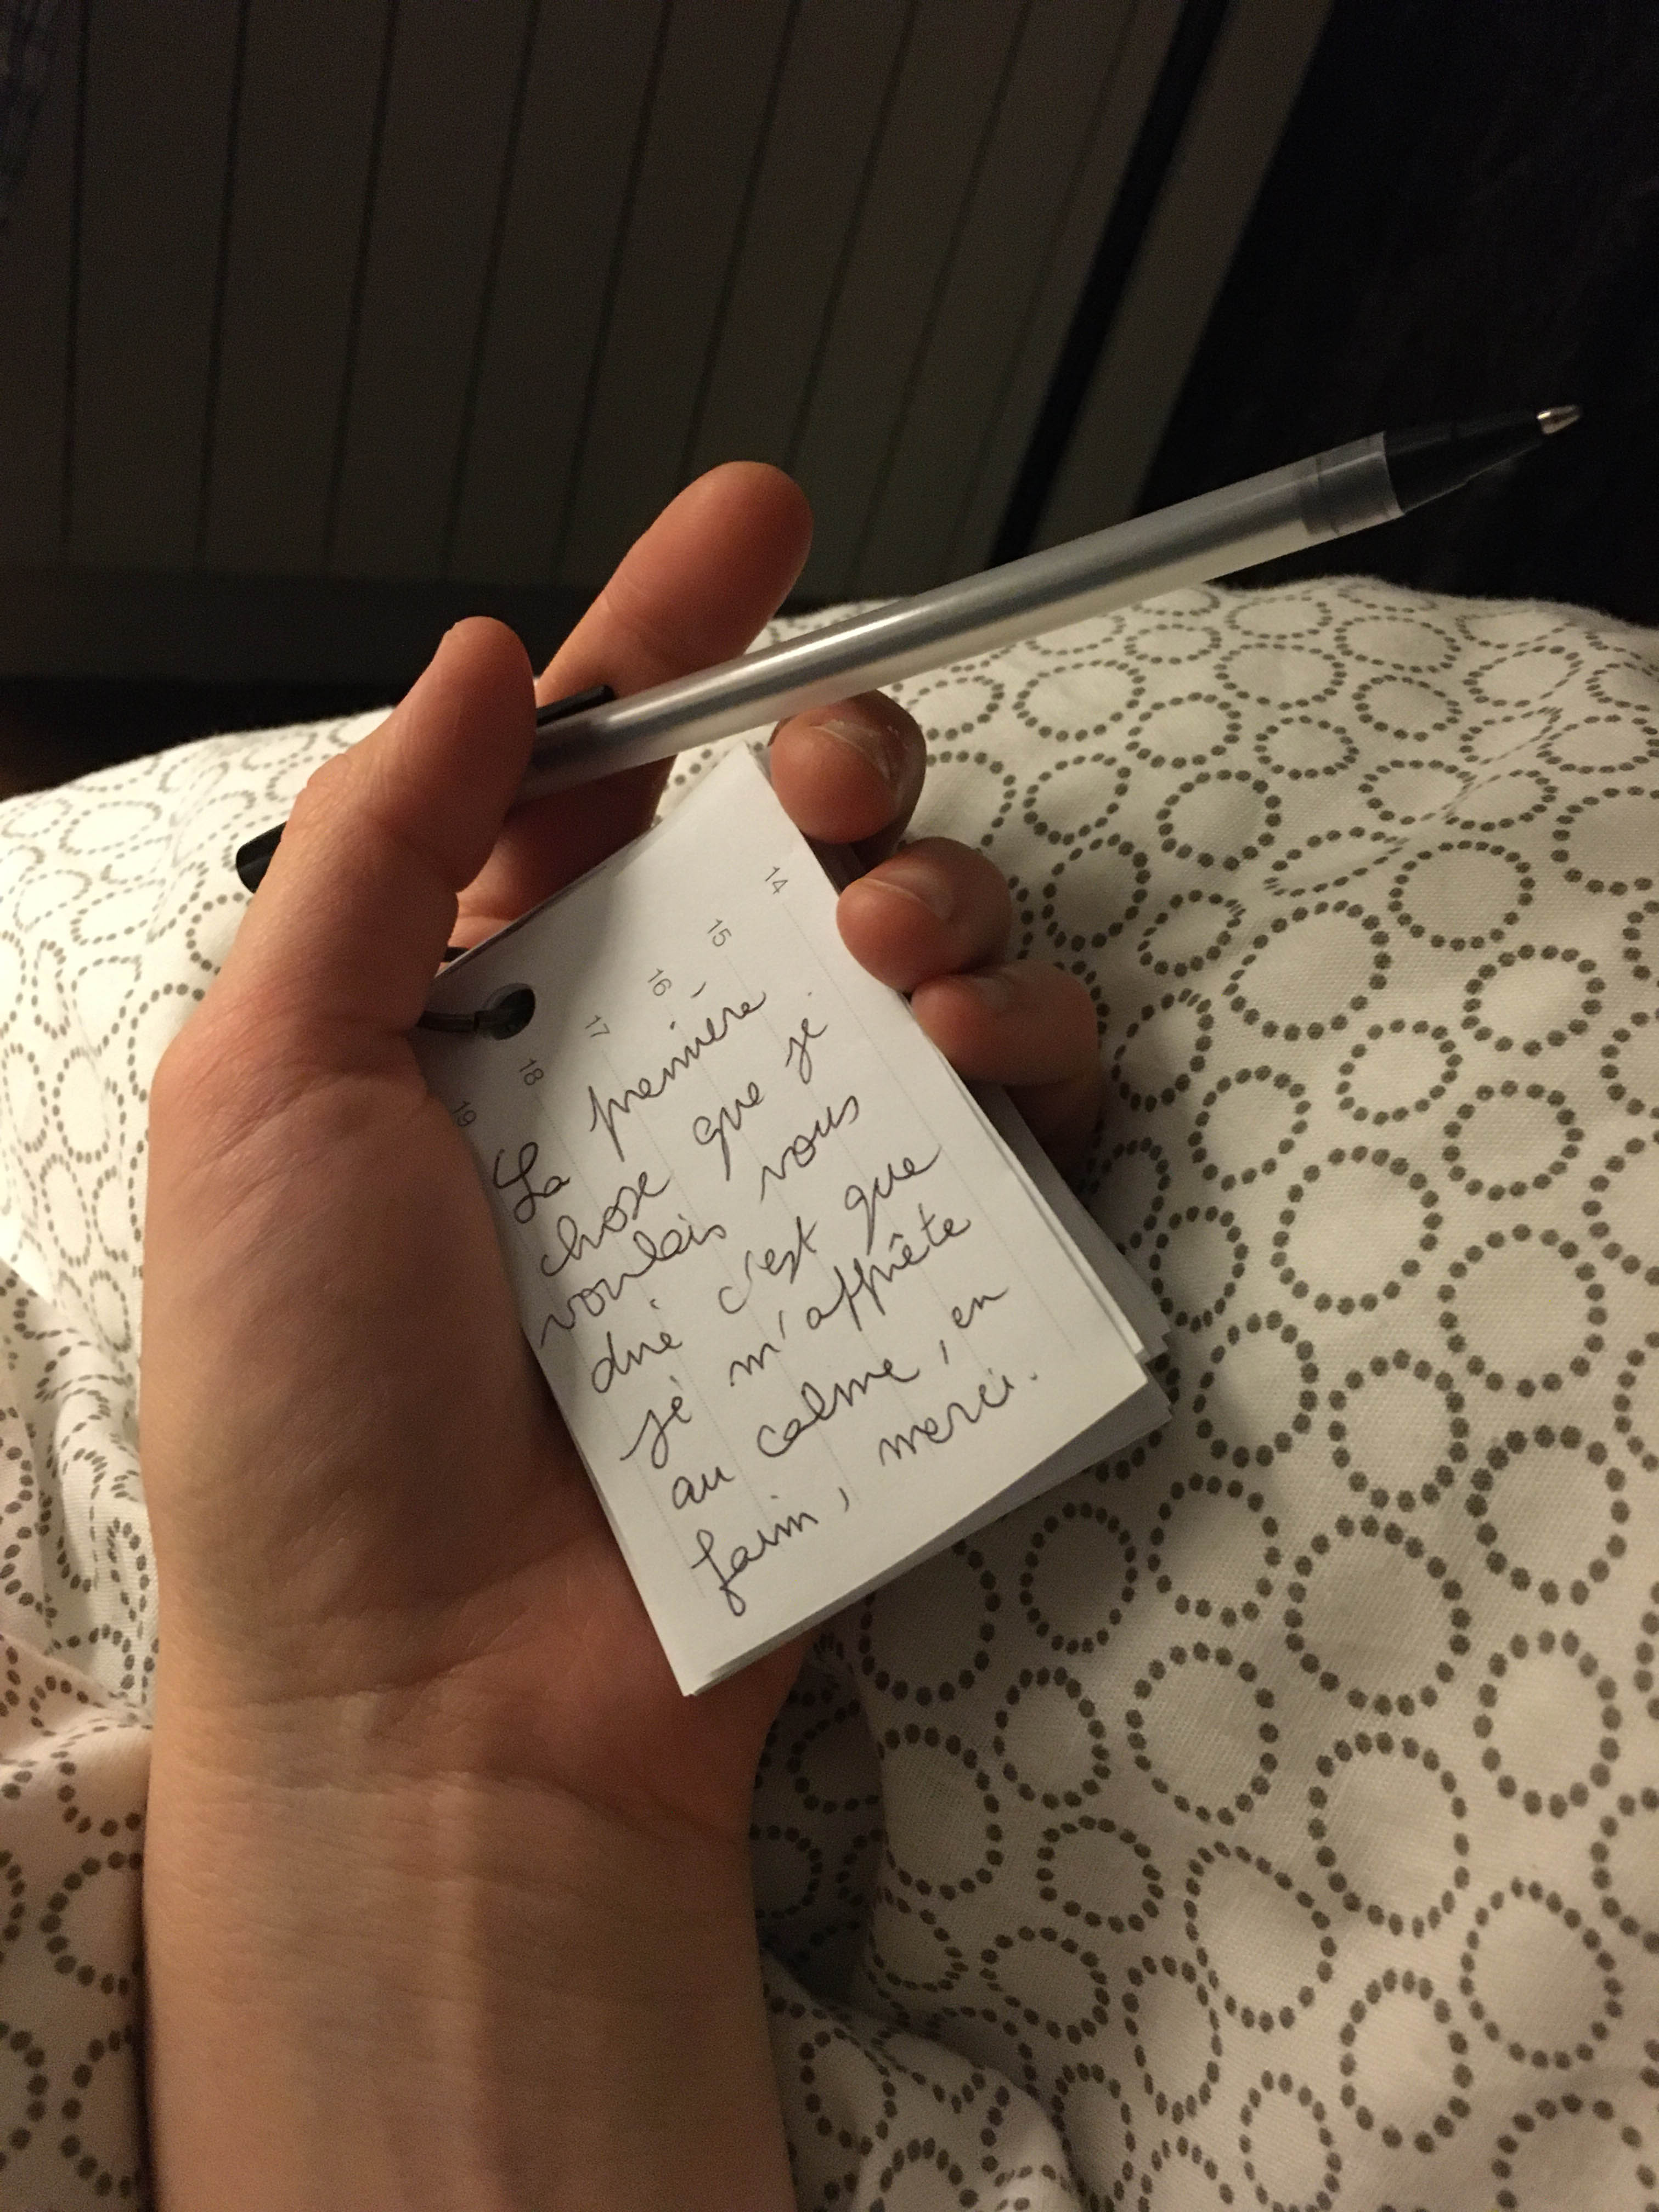 14
15
16
17
18
19
La première
chose que je
voulais vous
dire c'est que
je m'apprête
au calme, en
faim, merci.